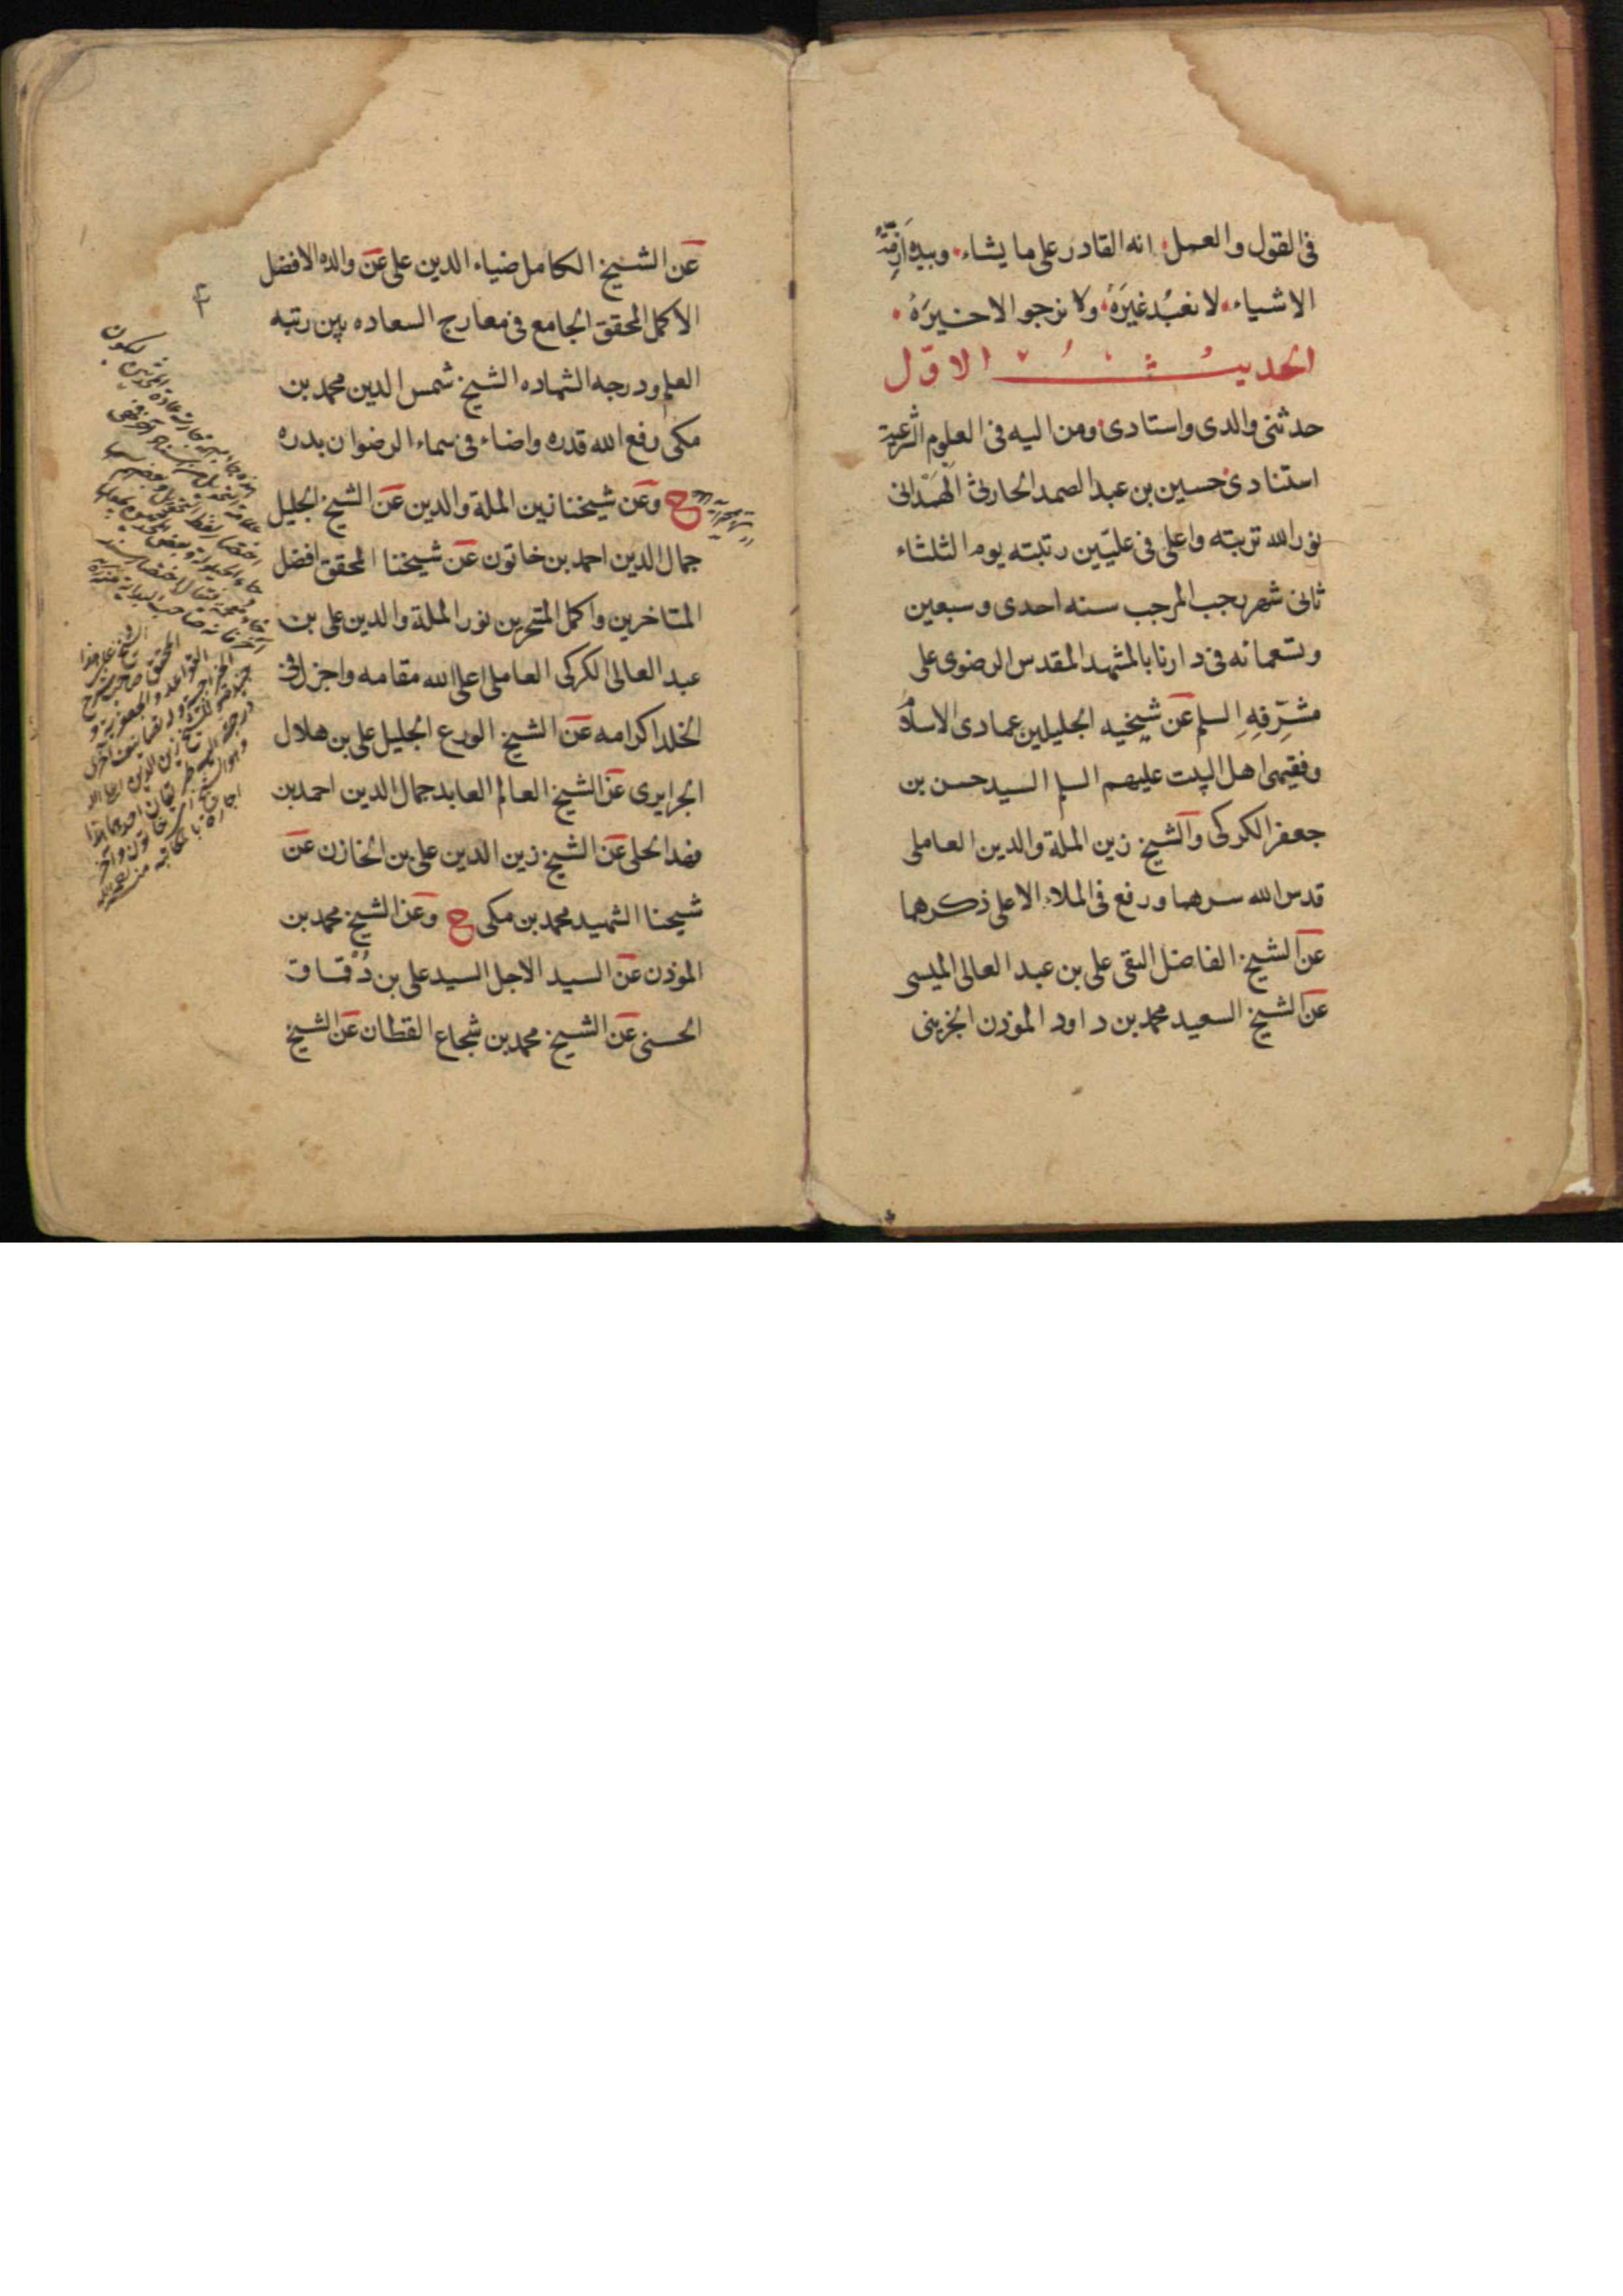 فى القول والعمل انه القادر على ما يشاء وبيده ازمّة
الاشياء لا نعبُد غيرَهُ ولا نرجو الا خيرَهُ
الحديث الاوّل
حدثنى والدى واستادى ومن اليه فى العلوم الشرعية
استنادى حسين بن عبد الصمد الحارثى الهَمْدانى
نور الله تربته واعلى فى عليّين رتبته يوم الثلثاء
ثانى شهر رجب المرجب سنه احدى وسبعين
وتسعمائه فى دارنا بالمشهد المقدس الرضوى على
مشرِّفِهِ السلم عن شيخيه الجليلين عمادى الاسلام
وفقيهى اهل البيت عليهم السلم السيد حسن بن
جعفر الكركى والشيخ زين الملة والدين العاملى
قدس الله سرهما ورفع فى الملاء الاعلى ذكرهما
عن الشيخ الفاضل التقى على بن عبد العالى الميسى
عن الشيخ السعيد محمد بن داود الموذن الجزينى
عن الشيخ الكامل ضياء الدين على عن والده الافضل
الاكمل المحقق الجامع فى معارج السعاده بين رتبه
العلم ودرجه الشهاده الشيخ شمس الدين محمد بن
مكى رفع الله قدره واضاء فى سماء الرضوان بدره
ح وعن شيخنا زين الملة والدين عن الشيخ الجليل
جمال الدين احمد بن خاتون عن شيخنا المحقق افضل
المتاخرين واكمل المتبحرين نور الملة والدين على بن
عبد العالى الكركى العاملى اعلى الله مقامه واجزل فى
الخلد اكرامه عن الشيخ الورع الجليل على بن هلال
الجزايرى عن الشيخ العالم العابد جمال الدين احمد بن
فهد الحلى عن الشيخ زين الدين على بن الخازن عن
شيخنا الشهيد محمد بن مكى ح وعن الشيخ محمد بن
الموذن عن السيد الاجل السيد على بن دُقماق
الحسنى عن الشيخ محمد بن شجاع القطان عن الشيخ